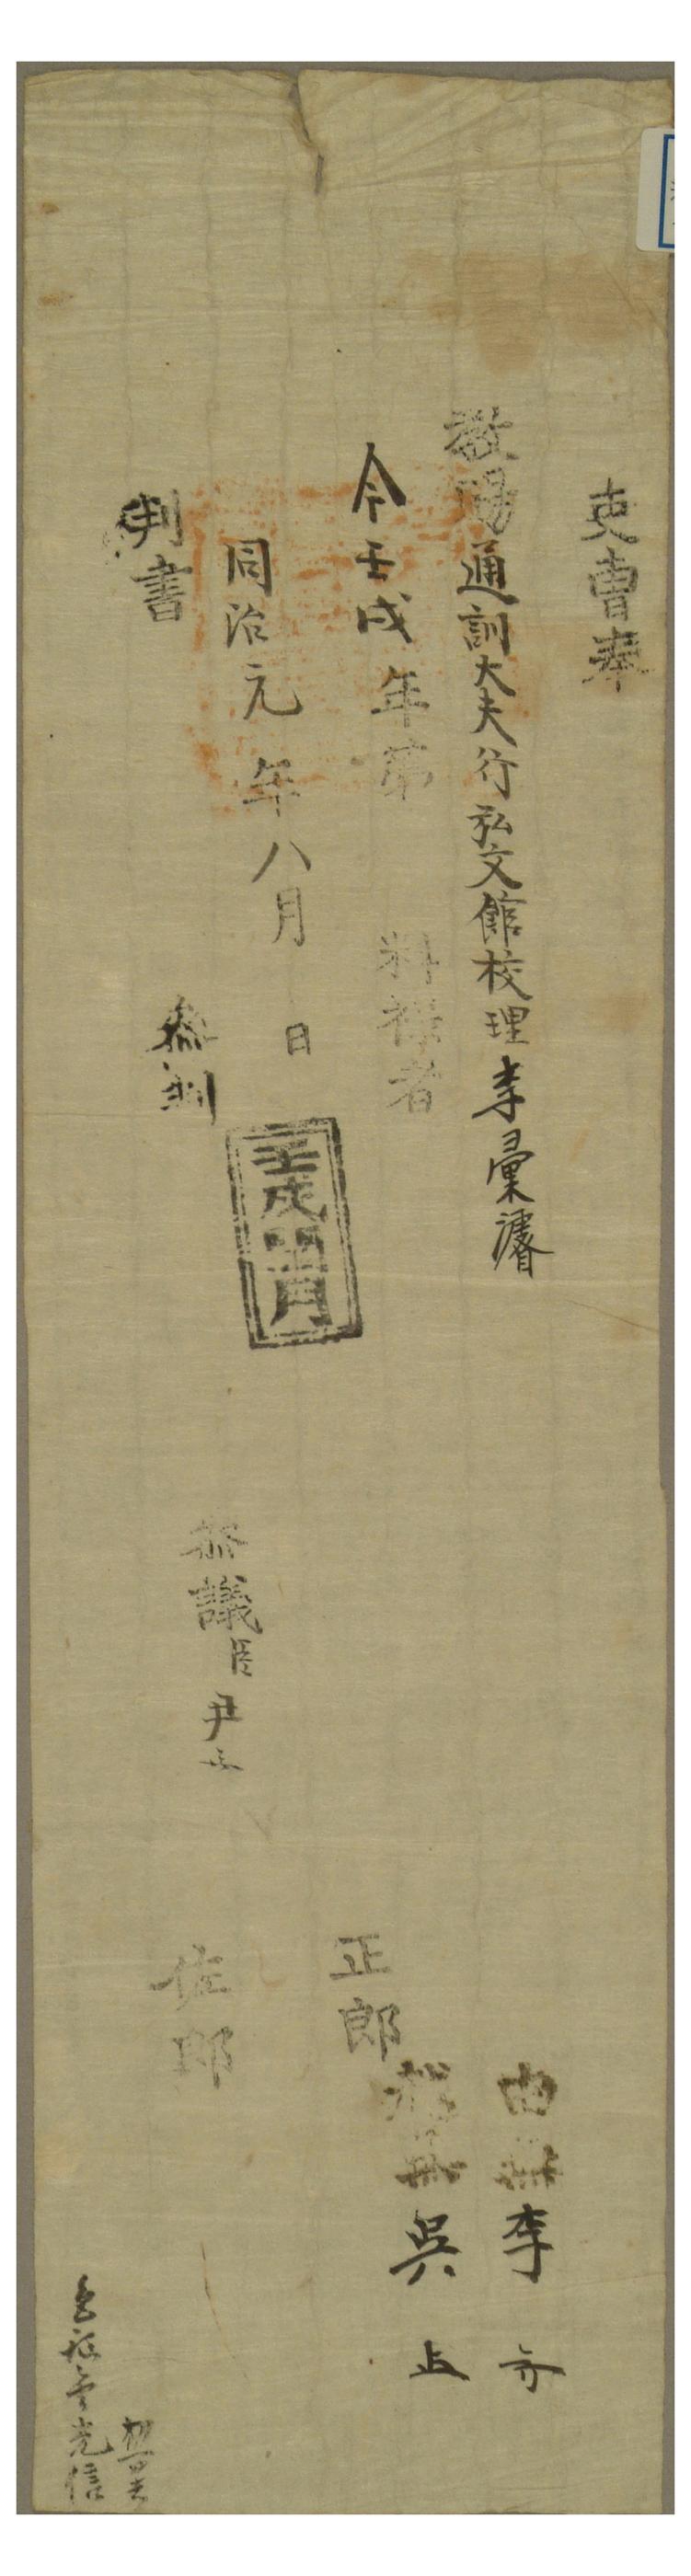 吏曹奉
教賜通訓大夫行弘文館校理李彙濬
今壬戌年第 料祿者
同治元年八月 日
壬戌 月
判書 參判 參議臣尹
正郎
佐郎
由無李
頉無吳
光信